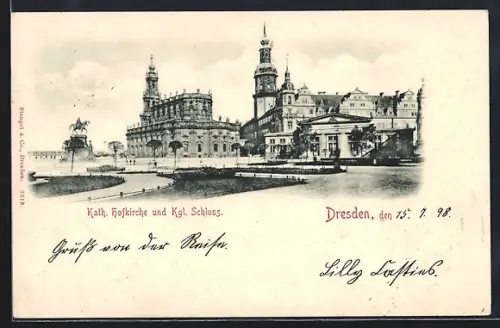 Stengel & Co., Dresden. 3819.
Kath. Hofkirche und Kgl. Schloss.
Dresden, den 15. 7. 98.
Gruß von der Reise.
Lilly Casties.